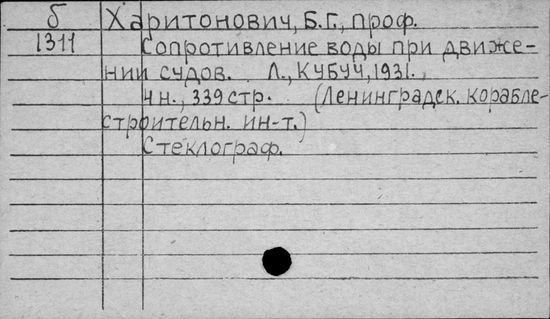 б Харитонович, Б.Г., проф.
1311 Сопротивление воды при движе-
нии судов. Л., КУБУЧ, 1931.,
4 н., 339 стр. (Ленинградск. корабле-
строительн. ин-т.)
Стеклограф.